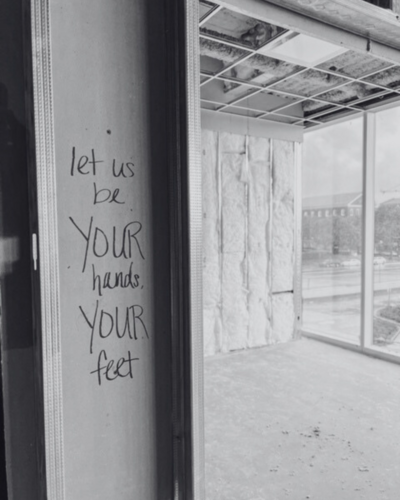 let us
be
YOUR
hands,
YOUR
feet